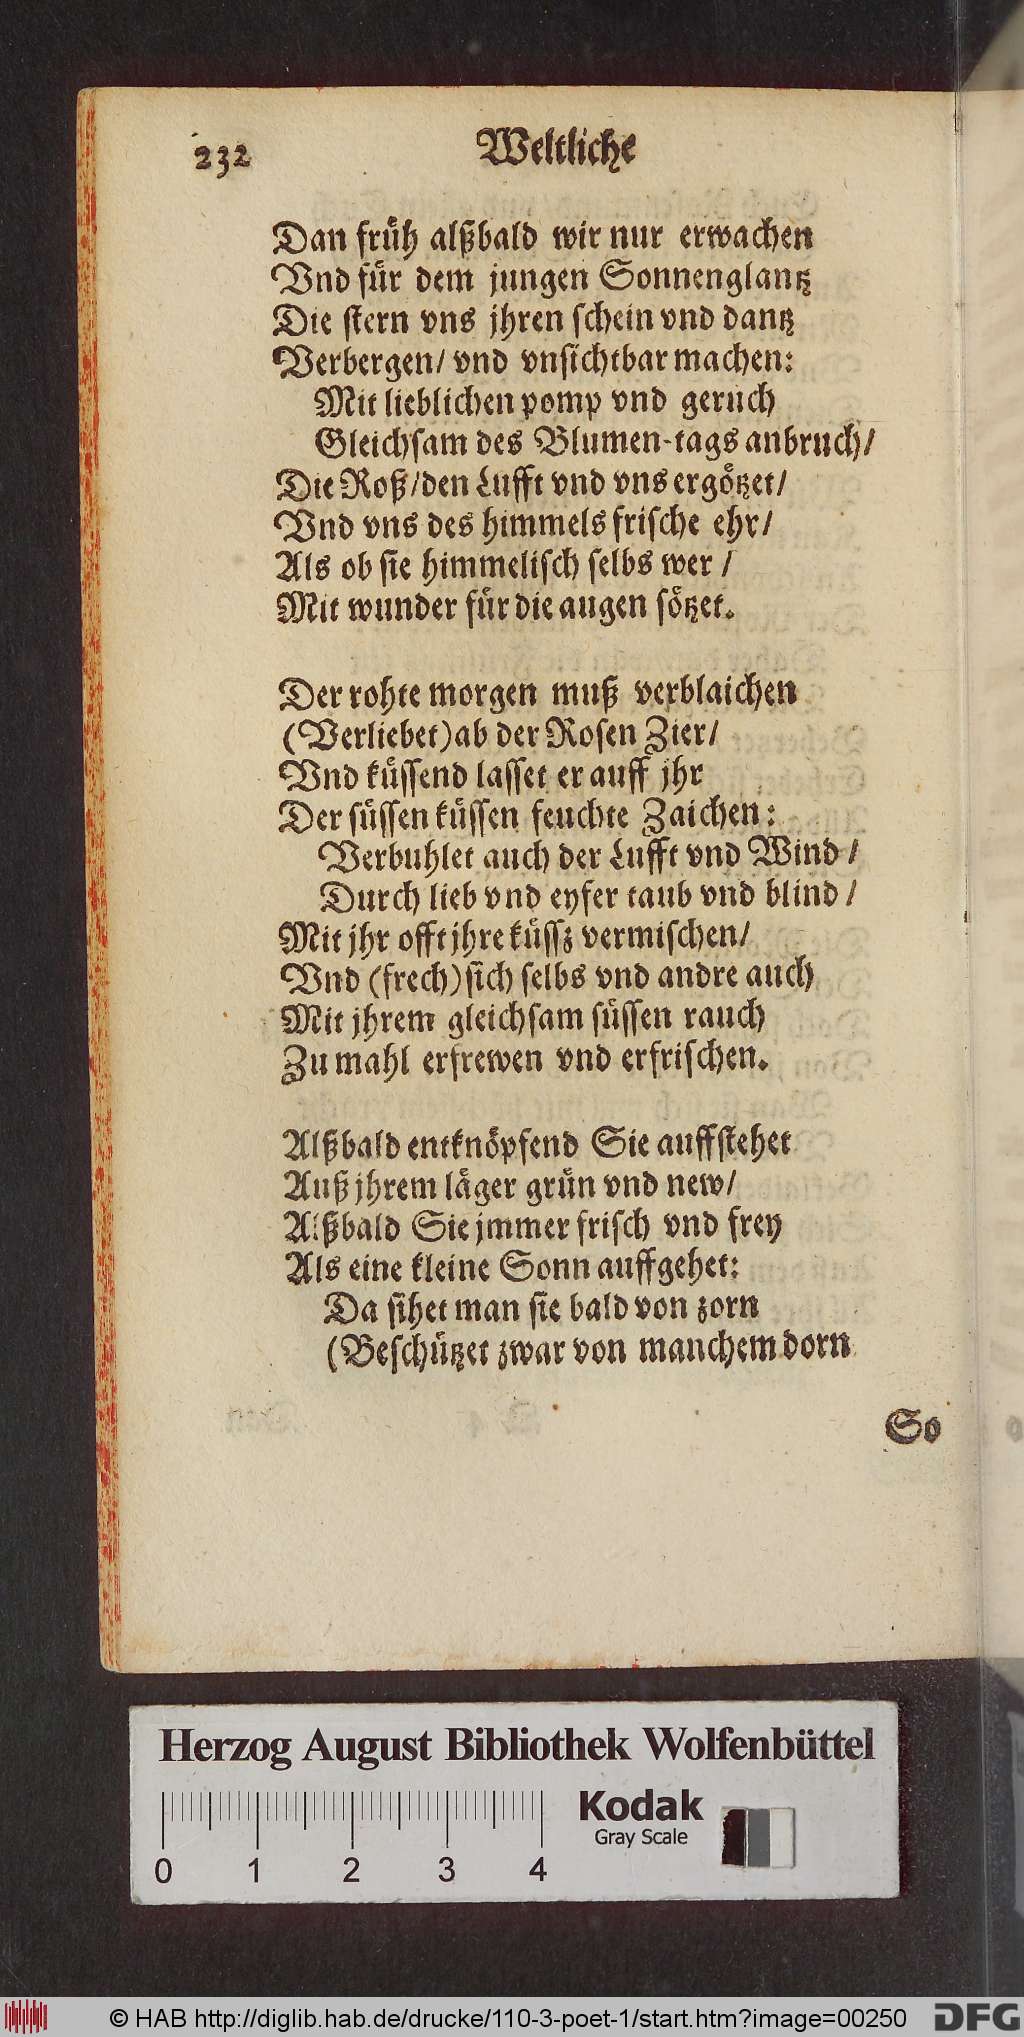 232 Weltliche
Dan früh alßbald wir nur erwachen
Vnd für dem jungen Sonnenglantz
Die stern vns jhren schein vnd dantz
Verbergen/ vnd vnsichtbar machen:
Mit lieblichen pomp vnd geruch
Gleichsam des Blumen-tags anbruch/
Die Roß/ den Lufft vnd vns ergötzet/
Vnd vns des himmels frische ehr/
Als ob sie himmelisch selbs wer /
Mit wunder für die augen sötzet.
Der rohte morgen muß verblaichen
(Verliebet) ab der Rosen Zier/
Vnd küssend lasset er auff jhr
Der süssen küssen feuchte Zaichen:
Verbuhlet auch der Lufft vnd Wind /
Durch lieb vnd eyfer taub vnd blind /
Mit jhr offt jhre küssz vermischen/
Vnd (frech) sich selbs vnd andre auch
Mit jhrem gleichsam süssen rauch
Zu mahl erfrewen vnd erfrischen.
Alßbald entknöpfend Sie auffstehet
Auß jhrem läger grün vnd new/
Alßbald Sie jmmer frisch vnd frey
Als eine kleine Sonn auffgehet:
Da sihet man sie bald von zorn
(Beschützet zwar von manchem dorn
So
Herzog August Bibliothek Wolfenbüttel
Kodak
Gray Scale
0 1 2 3 4
© HAB http://diglib.hab.de/drucke/110-3-poet-1/start.htm?image=00250
DFG